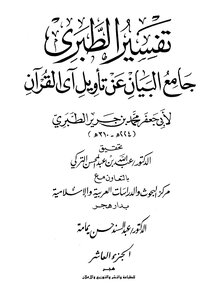 تفسير الطبرى
جامع البيان عن تأويل آى القرآن
لأبى جعفر محمد بن جرير الطبرى
(٢٢٤هـ - ٣١٠هـ)
تحقيق
الدكتور عبد الله بن عبد المحسن التركى
بالتعاون مع
مركز البحوث والدراسات العربية والإسلامية
بدار هجر
الدكتور عبد السند حسن يمامة
الجزء العاشر
هجر
للطباعة والنشر والتوزيع والإعلان